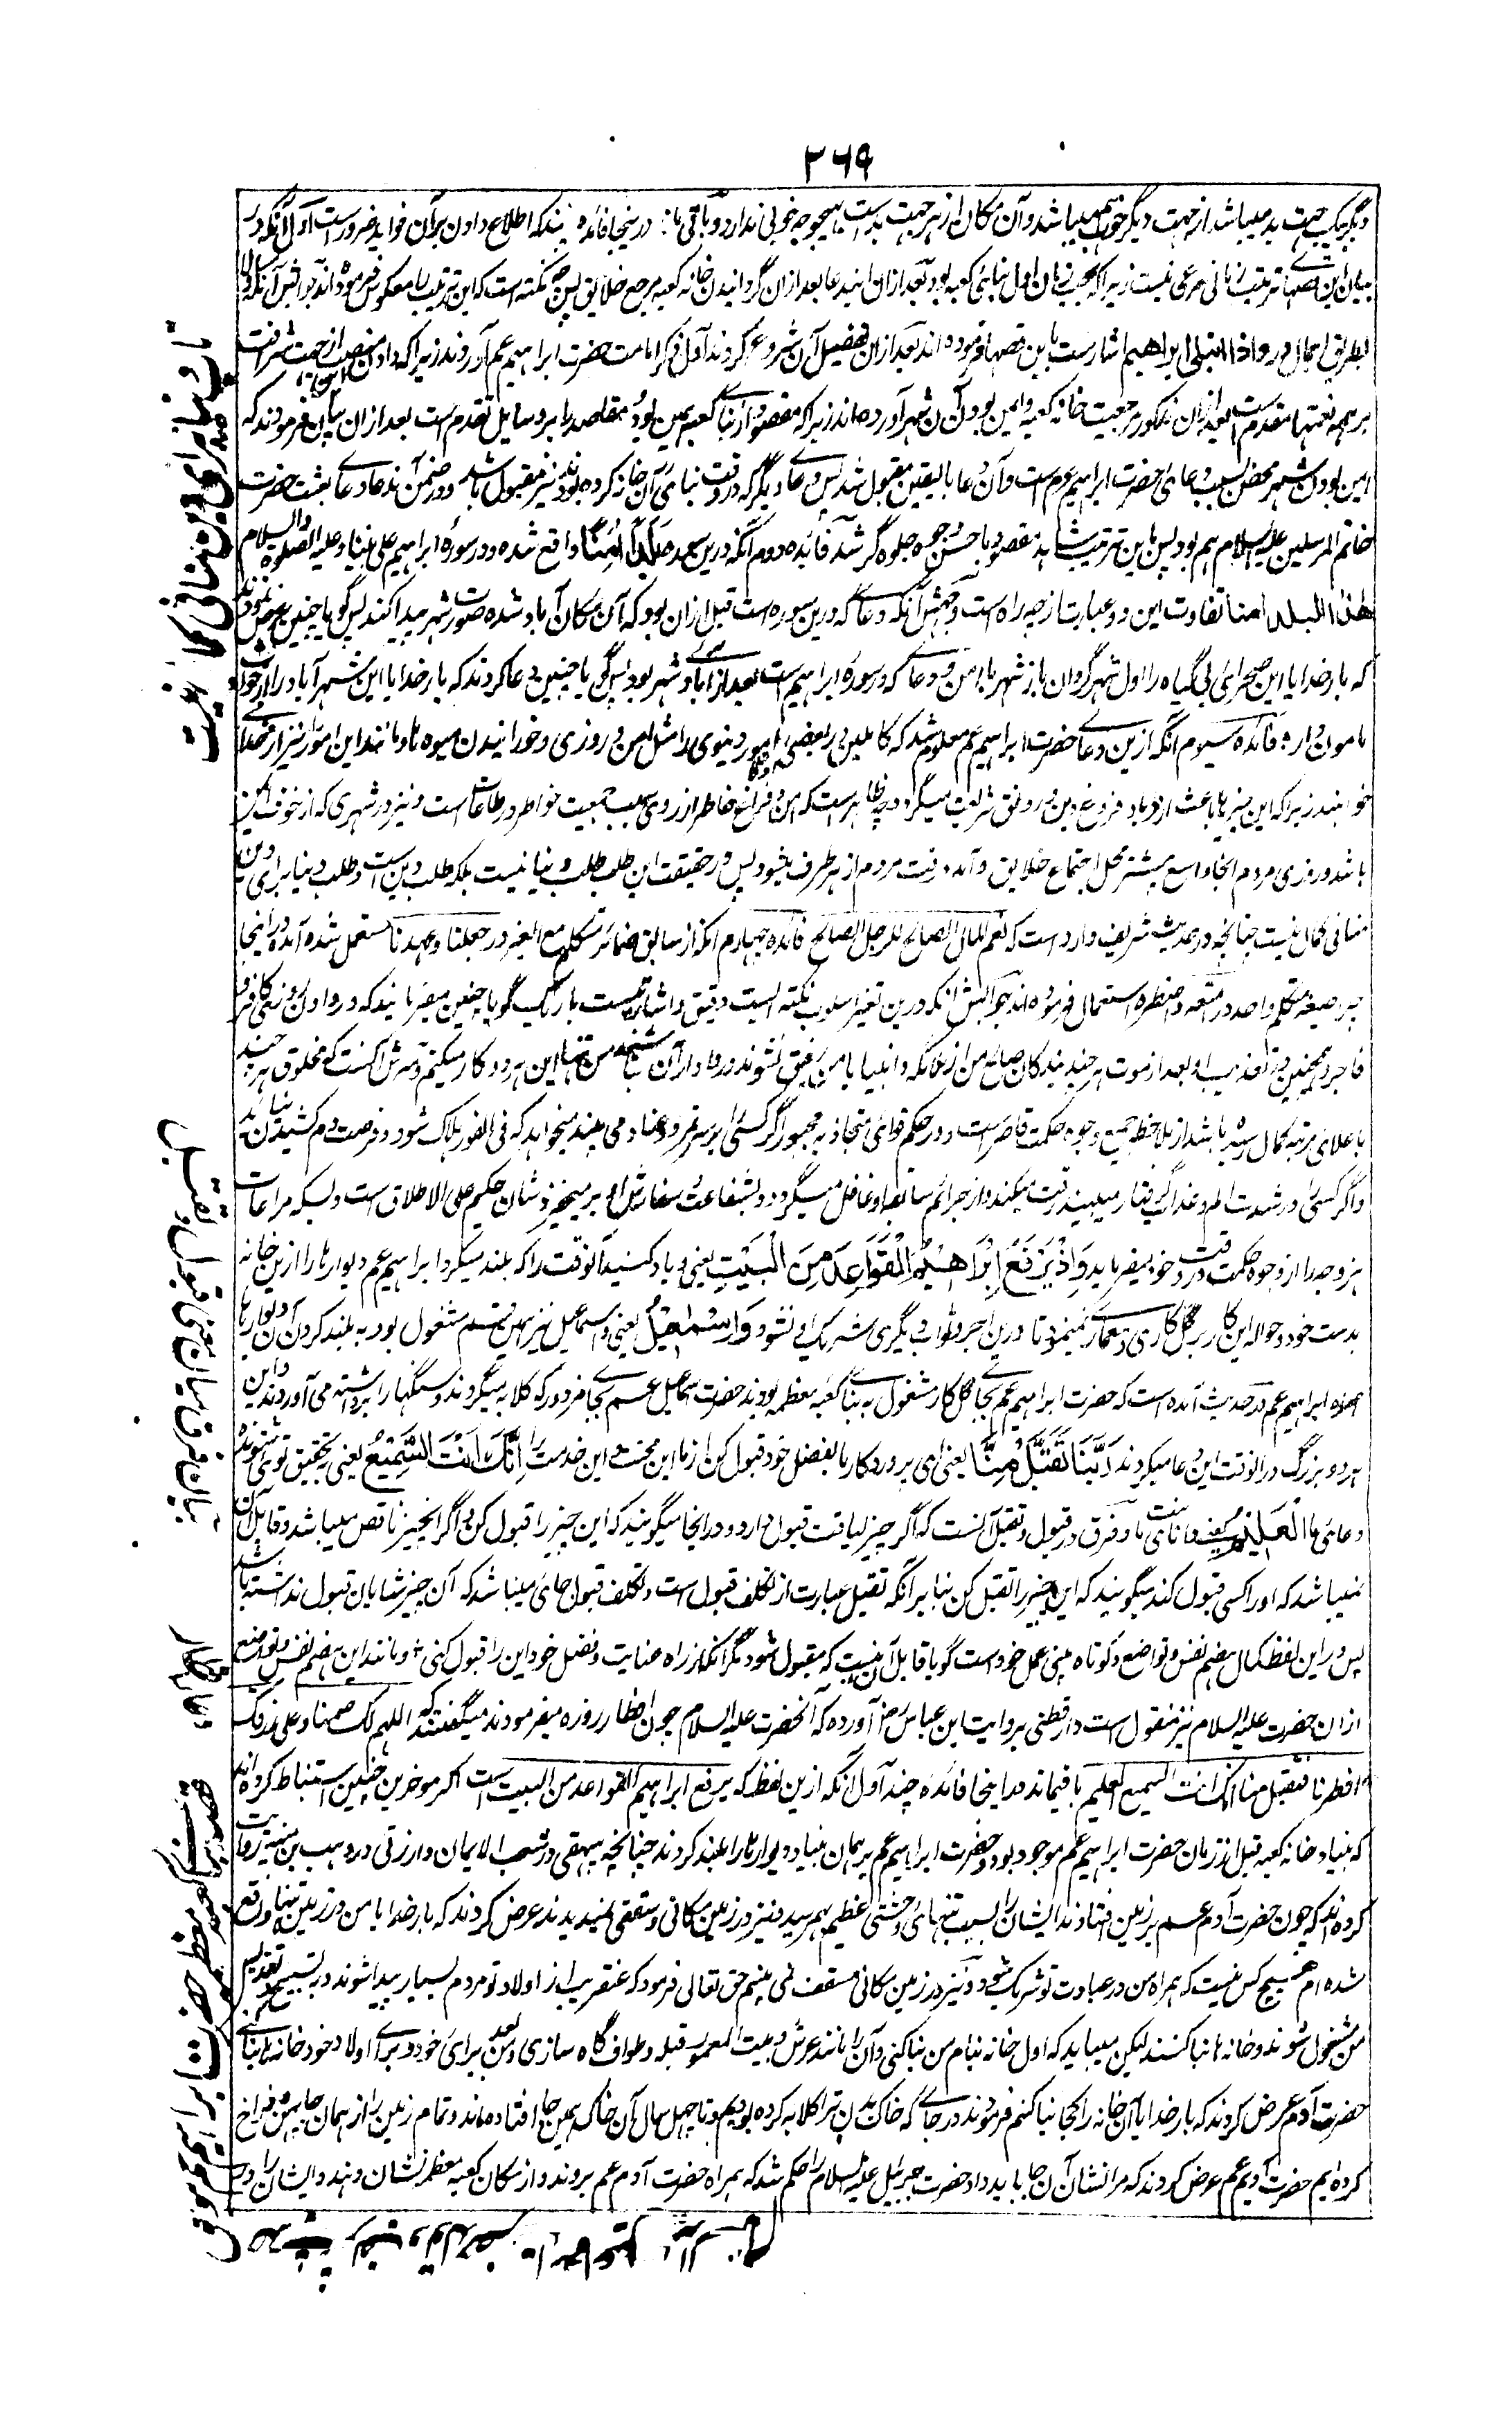 ۳۶۹
دیگر یک جهت بد میباشد از جهت دیگر خوب هم میباشد و آن مکان از هر جهت بدست هیچ وجه خوبی ندارد و باقی ماند درینجا فائده چند که اطلاع دادن بر آن فواید ضرورست اول آنکه در
بیان این قصها ترتیب زمانی مرعی نیست زیرا که بحسب زمان اول بنای کعبه بود بعد ازان این دعا بعد ازان گردانیدن خانه کعبه مرجع خلایق پس چه نکته است که این ترتیب را معکوس فرموده اند جوابش آنکه اولا
بطریق اجمال در و اذ ابتلی ابراهیم اشارست باین قصها فرموده اند بعد ازان تفصیل آن شروع کردند اول ذکر امامت حضرت ابراهیم عم آوردند زیرا که دادن این منصب از جهت شرافت
بر همه نعمتها مقدم است بعد ازان مذکور مرجعیت خانه کعبه و ایمن بودن آن شهر آورده اند زیرا که مقصود از بنای کعبه همین بود و مقاصد را بر وسایل تقدم است بعد ازان بیان فرمودند که
امین بودن شهر محض بسبب دعای حضرت ابراهیم عم است و آن دعا بالیقین مقبول شد پس دعای دیگر که در وقت بنای آن خانه کرده بودند نیز مقبول باشد و در ضمن آن دعا دعای بعثت حضرت
خاتم المرسلین علیه السلام هم بود پس باین ترتیب شاهد مقصود باحسن وجوه جلوه گر شد فائده دوم آنکه درین سوره هذا بلدا آمنا واقع شده و در سورهٔ ابراهیم علی نبینا و علیه الصلوة والسلام
هذا البلد امنا تفاوت این دو عبارت از چه راه است وجهش آنکه دعای که درین سوره است قبل ازان بود که آن مکان آباد شده صورت شهر پیدا کند پس گویا چنین عرض نمودند
که بار خدایا این صحرای بی گیاه را اول شهر گردان باز شهر با امن و دعای که در سوره ابراهیم است بعد از آبادی شهر بود پس گویا چنین دعا کردند که بار خدایا این شهر آباد را از حوادث
مامون دار فائده سیوم آنکه ازین دعای حضرت ابراهیم عم معلوم شد که کاملین را بعضی امور دنیوی را مثل امن و روزی و خورانیدن میوه ها و مانند این امور نیز از خدای
خواهند زیرا که این چیزها باعث ازدیاد فروغ دین و رونق شریعت میگردد چه ظاهر است که امن و فراغ خاطر از روی سبب جمعیت خواطر در طاعات است و نیز در شهری که از خوف ایمن
باشد و روزی مردم آنجا واسع بیشتر محل اجتماع خلایق و آمد و رفت مردم از هر طرف میشود پس در حقیقت این طلب طلب دنیا نیست بلکه طلب دین است و طلب دنیا برای دین
منافی کمال نیست چنانچه در حدیث شریف وارد است که نعم المال الصالح للرجل الصالح فائده چهارم آنکه از سابق ضمائر متکلم مع الغیر در جعلنا و عهدنا مستعمل شده آمده در اینجا
چرا صیغه متکلم واحد در امتعه و اضطره استعمال فرموده اند جوابش آنکه درین تغیر اسلوب نکته ایست دقیق و اشارتیست باریک گویا چنین میفرمایند که در دادن روزی کافر و
فاجر و همچنین در تعذیب او بعد از موت هر چند بندگان صالح من از ملائکه و انبیا با من رفیق نشوند و روادار آن نباشند من تنها این هر دو کار میکنم و سرش آنست که مخلوق هر چند
باعلای مرتبه کمال رسیده باشد از ملاحظه جمیع وجوه حکمت قاصر است و در حکم قوای متجاذبه مجبور اگر کسی را بر سر تمرد و عناد می بیند میخواهد که فی الفور هلاک شود و فرصت دم کشیدن نیابد
و اگر کسی را در شدت الم و عذاب گرفتار میبیند رقت میکند و از جرائم سابقه او غافل میگردد و بشفاعت و سفارش او بر میخیزد شان حکیم علی الاطلاق است و بسکه مراعات
هر وجه را از وجوه حکمت در وقت خود میفرماید وَاِذْ یَرْفَعُ اِبْرَاهِیْمُ الْقَوَاعِدَ مِنَ الْبَیْتِ یعنی و یاد کنید آنوقت را که بلند میکرد ابراهیم عم دیوارها را ازین خانه
بدست خود و حواله این کار بر گل کاری و معماری نمیفرمود تا درین اجر و ثواب دیگری شریک او نشود وَاِسْمٰعِیْلُ یعنی و اسماعیل نیز همین قسم مشغول بود به بلند کردن آن دیوارها
همراه ابراهیم عم در حدیث آمده است که حضرت ابراهیم عم بجای گل کار مشغول به بنای کعبه معظمه بودند حضرت اسماعیل عم بجای مزدور که کلابه میکردند و سنگها را برداشته می آوردند و این
هر دو بزرگ در آنوقت این دعا میکردند رَبَّنَا تَقَبَّلْ مِنَّا یعنی ای پروردگار ما بفضل خود قبول کن از ما این محنت و این خدمت را اِنَّکَ اَنْتَ السَّمِیْعُ یعنی بتحقیق توئی شنونده
دعای ما الْعَلِیْمُ یعنی دانای نیت ما و فرق در قبول و تقبل آنست که اگر چیز لیاقت قبول دارد در آنجا میگویند که این چیز را قبول کن و اگر آنچیز ناقص میباشد و قابل آن
نمیباشد که او را کسی قبول کند میگویند که این چیز را تقبل کن بنابر آنکه تقبل عبارت از تکلف قبول است و تکلف قبول جای میباشد که آن چیز شایان قبول نداشته باشد
پس در این لفظ کمال هضم نفس و تواضع و کوتاه بینی عمل خود است گویا قابل آن نیست که مقبول شود مگر آنکه از راه عنایت و فضل خود این را قبول کنی و مانند این هضم نفس و تواضع
ازان حضرت علیه السلام نیز منقول است دارقطنی بروایت ابن عباس رض آورده که آنحضرت علیه السلام چون افطار روزه میفرمودند میگفتند که اللهم لک صمنا و علی رزقک
افطرنا فتقبل منا انک انت السمیع العلیم باقیماند در اینجا فائده چند اول آنکه ازین لفظ که یرفع ابراهیم القواعد من البیت است اکثر مورخین چنین استنباط کرده اند
که بنیاد خانه کعبه قبل از زمان حضرت ابراهیم عم موجود بود و حضرت ابراهیم عم بر همان بنیاد دیوارها را بلند کردند چنانچه بیهقی در شعب الایمان و ازرقی در وهب بن منبه روایت
کرده اند که چون حضرت آدم عم بر زمین افتادند ایشان را بسبب تنهائی وحشتی عظیم بهم رسید و نیز در زمین مکانی و سقفی ندیدند عرض کردند که بار خدایا من در زمین تنها واقع
شده ام هیچ کس نیست که همراه من در عبادت تو شریک شود و نیز در زمین مکانی مسقف نمی بینم حق تعالی فرمود که عنقریب از اولاد تو مردم بسیار پیدا شوند و به تسبیح و تقدیس
من مشغول شوند و خانه ها بنا کنند لیکن میباید که اول خانه بنام من بنا کنی و آن را مانند عرش و بیت المعمور قبله و طواف گاه سازی و من بعد برای خود و برای اولاد خود خانه ها بنا کنی
حضرت آدم عرض کردند که بار خدایا آن خانه را کجا بنا کنم فرمودند در جای که خاک بدن ترا کلابه کرده بودیم و تا چهل سال آن خاک همین جا افتاده ماند و تمام زمین را از همان جا پهن و فراخ
کرده ایم حضرت آدم عم عرض کردند که مرا نشان آن جا باید داد حضرت جبرئیل علیه السلام را حکم شد که همراه حضرت آدم عم بروند و از مکان کعبه معظمه نشان دهند و ایشان را در
بیان فرق میان معنی قبول و تقبل
دعای افطار